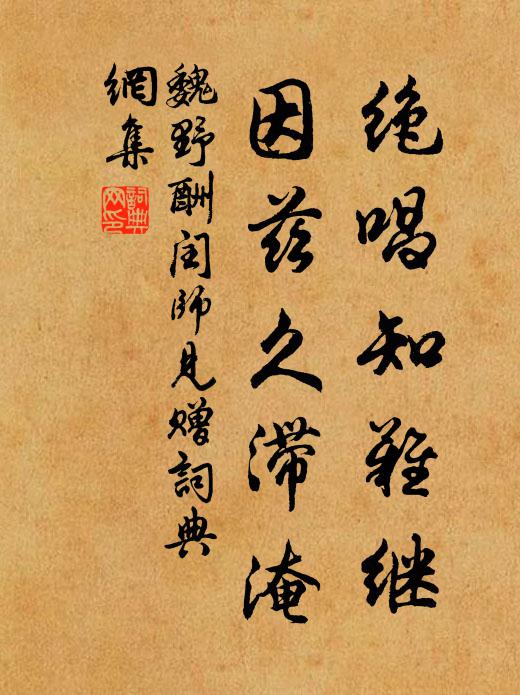 绝唱知难继
因兹久滞淹
魏野酬闰师见赠詞典
網集
詞典
网印